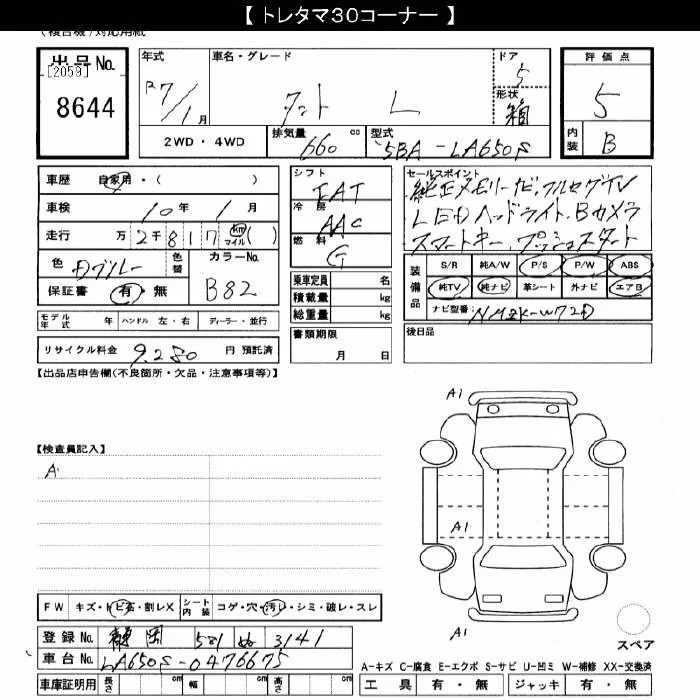 【 トレタマ30コーナー 】
(複合機)対応用紙
出品No.
[2059]
8644
年式
R7/1月
車名・グレード
タント L
ドア
5
形状
箱
評価点
5
内装
B
2WD・4WD
排気量
660 cc
型式
5BA-LA650S
車歴 自家用・( )
車検 10年 1月
走行 万 2千 8 1 7 km マイル ( )
色 Dブルー 色替
カラーNo.
B82
保証書 有・無
シフト
FAT
冷房
AAC
燃料
G
乗車定員 名
積載量 kg
総重量 kg
書類期限
月 日
セールスポイント
純正メモリーナビ、フルセグTV
LEDヘッドライト、Bカメラ
スマートキー、プッシュスタート
装備品
S/R 純A/W P/S P/W ABS
純TV 純ナビ 革シート 外ナビ エアB
ナビ型番: NMZK-W72D
後日品
モデル年式 年 ハンドル 左・右 ディーラー・並行
リサイクル料金 9,280 円 預託済
【出品店申告欄(不良箇所・欠品・注意事項等)】
【検査員記入】
A1
A1
A1
A1
FW キズ・トビ石・割レX シート内装 コゲ・穴・汚レ・シミ・破レ・スレ
登録No. 静岡 581 ぬ 3141
車台No. LA650S-0476675
車庫証明用 長さ cm 幅 cm 高さ cm
スペア
A-キズ C-腐食 E-エクボ S-サビ U-凹ミ W-補修 XX-交換済
工具 有・無 ジャッキ 有・無